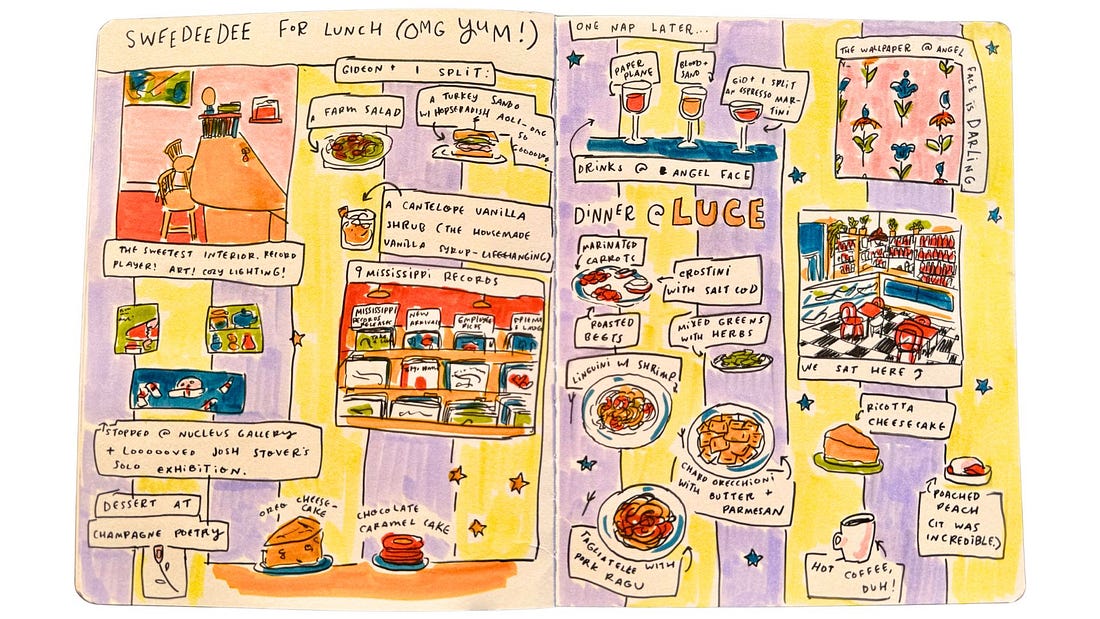 SWEEDEEDEE FOR LUNCH (OMG YUM!)
GIDEON + I SPLIT:
A FARM SALAD
A TURKEY SANDO
W/ HORSERADISH AOLI_OMG
SO
GOOOOD!
A CANTELOPE VANILLA
SHRUB (THE HOUSEMADE
VANILLA SYRUP-LIFECHANGING)
THE SWEETEST INTERIOR. RECORD
PLAYER! ART! COZY LIGHTING!
MISSISSIPPI RECORDS
MISSISSIPPI
RECORDS RELEASES
NEW
ARRIVALS
EMPLOYEE
PICKS
STOPPED @ NUCLEUS GALLERY
+ LOOOOOVED JOSH STOVER'S
SOLO EXHIBITION.
DESSERT AT
CHAMPAGNE POETRY
OREO CHEESE-
CAKE
CHOCOLATE
CARAMEL CAKE
ONE NAP LATER...
PAPER
PLANE
BLOOD +
SAND
GID + I SPLIT
AN ESPRESSO MAR-
TINI
DRINKS @ ANGEL FACE
THE WALLPAPER @ ANGEL
FACE IS DARLING
DINNER @ LUCE
MARINATED
CARROTS
CROSTINI
WITH SALT COD
ROASTED
BEETS
MIXED GREENS
WITH HERBS
LINGUINI W/ SHRIMP
CHARD ORECCHIONI
WITH BUTTER +
PARMESAN
TAGLIATELLE WITH
PORK RAGU
WE SAT HERE
RICOTTA
CHEESECAKE
POACHED
PEACH
(IT WAS
INCREDIBLE)
HOT COFFEE,
DUH!